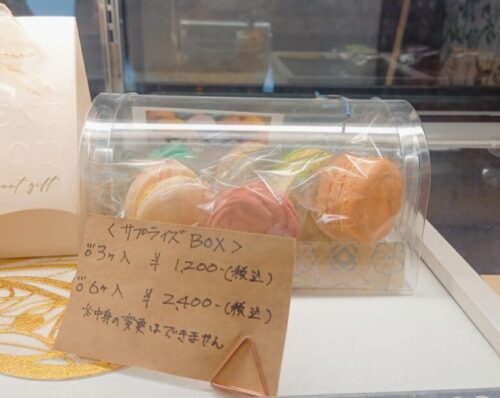 <サプライズBOX>
3ヶ入 ¥1,200-(税込)
6ヶ入 ¥2,400-(税込)
※中身の変更はできません
OU
sweet gift